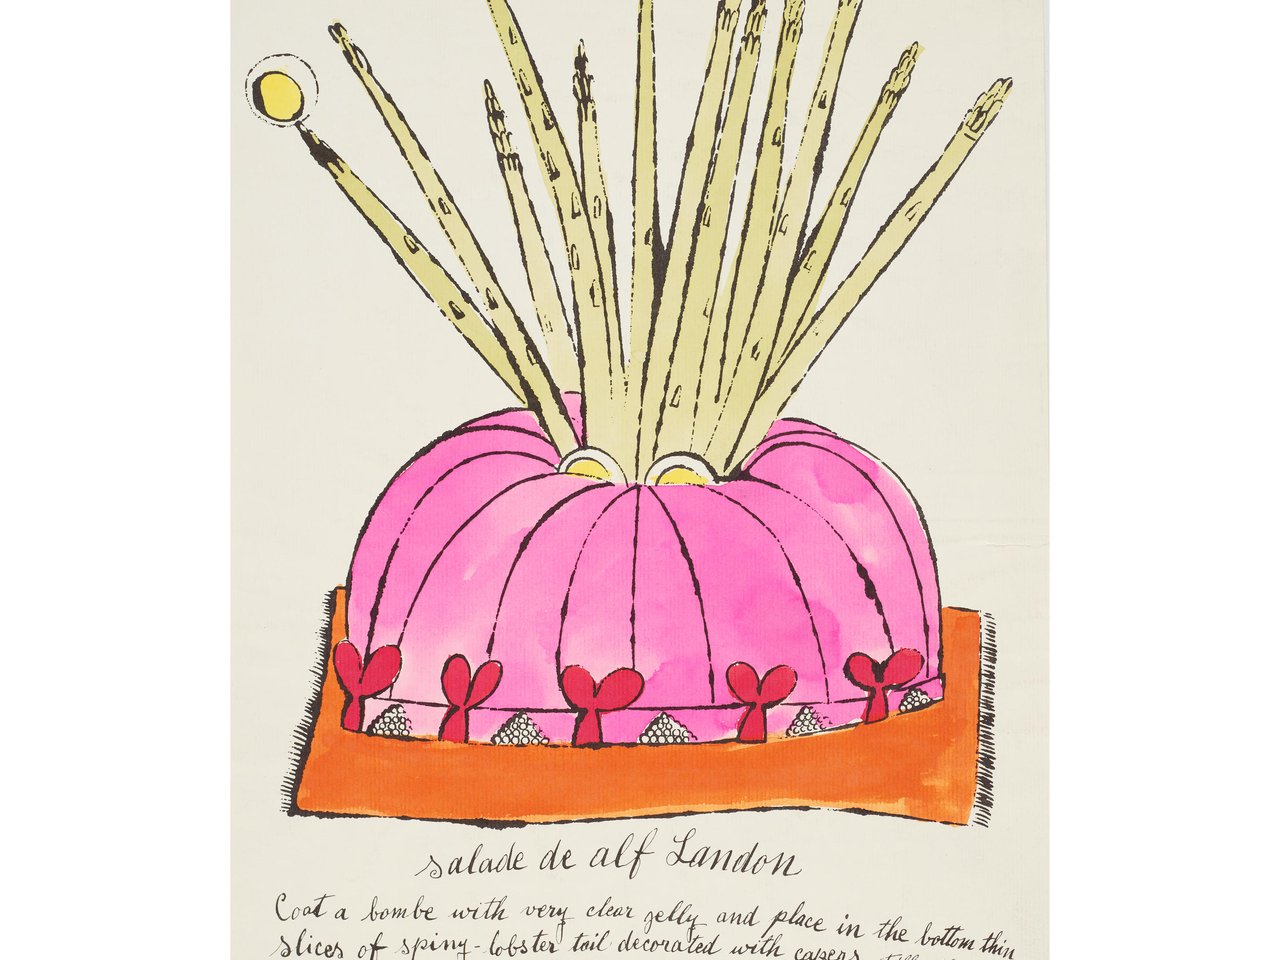 salade de alf Landon
Coat a bombe with very clear gelly and place in the bottom thin
slices of spiny-lobster tail decorated with capers